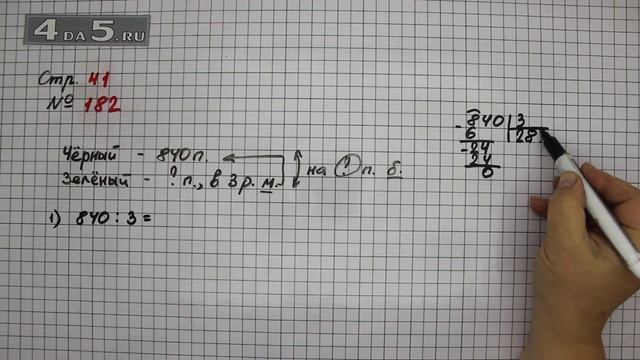 4 DA 5.RU
Стр. 41
№ 182
Чёрный - 840п.
Зелёный - ? п., в 3 р. м.
на ? п. б.
1) 840 : 3 =
- 840 3
6 28
- 24
24
0